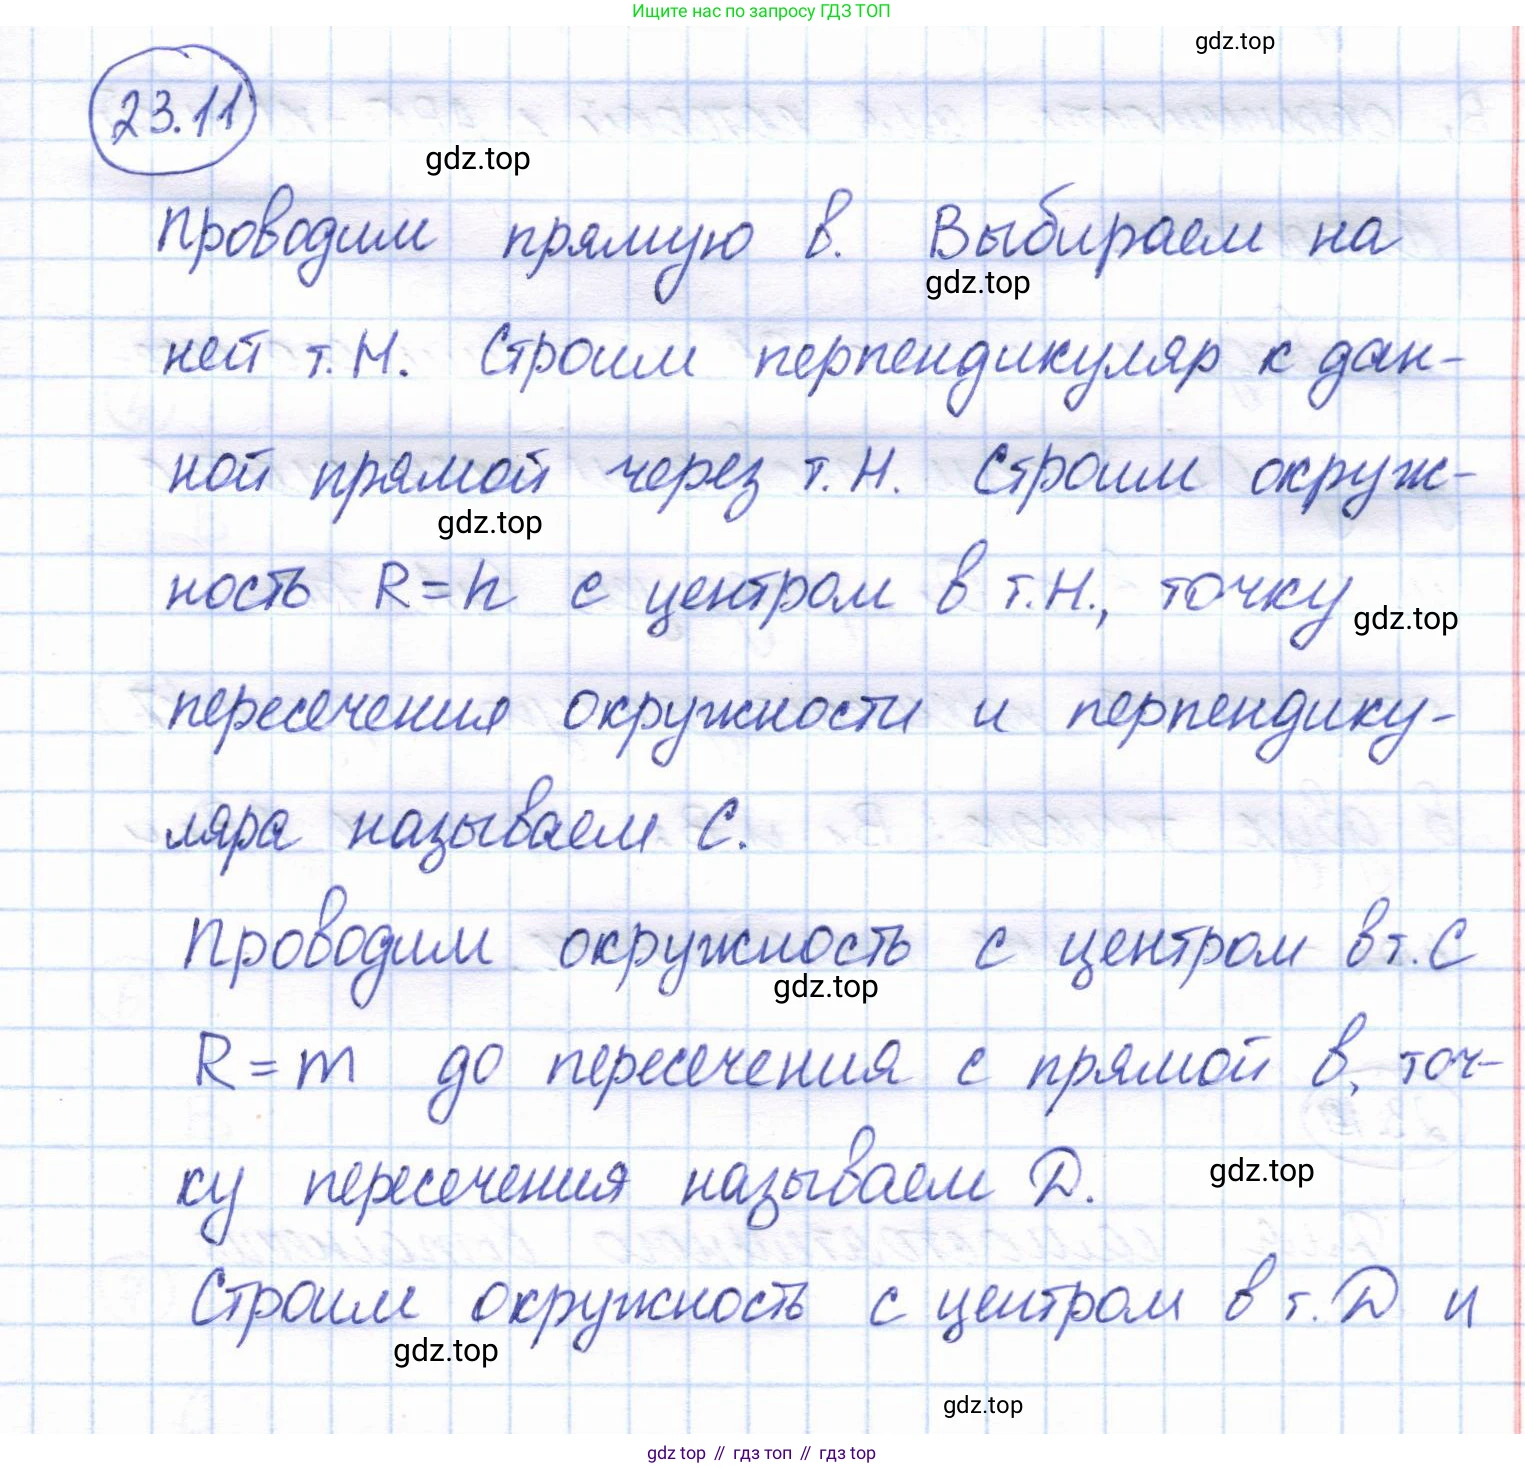 Ищите нас по запросу ГДЗ ТОП
gdz.top
23.11
gdz.top
Проводим прямую b. Выбираем на
gdz.top
ней т. H. Строим перпендикуляр к дан-
ной прямой через т. H. Строим окруж-
gdz.top
ность R=h с центром в т. H., точку
gdz.top
пересечения окружности и перпендику-
ляра называем C.
Проводим окружность с центром в т. C
gdz.top
R=m до пересечения с прямой b, точ-
ку пересечения называем D.
gdz.top
Строим окружность с центром в т. D и
gdz.top
gdz.top
gdz top // гдз топ // гдз top